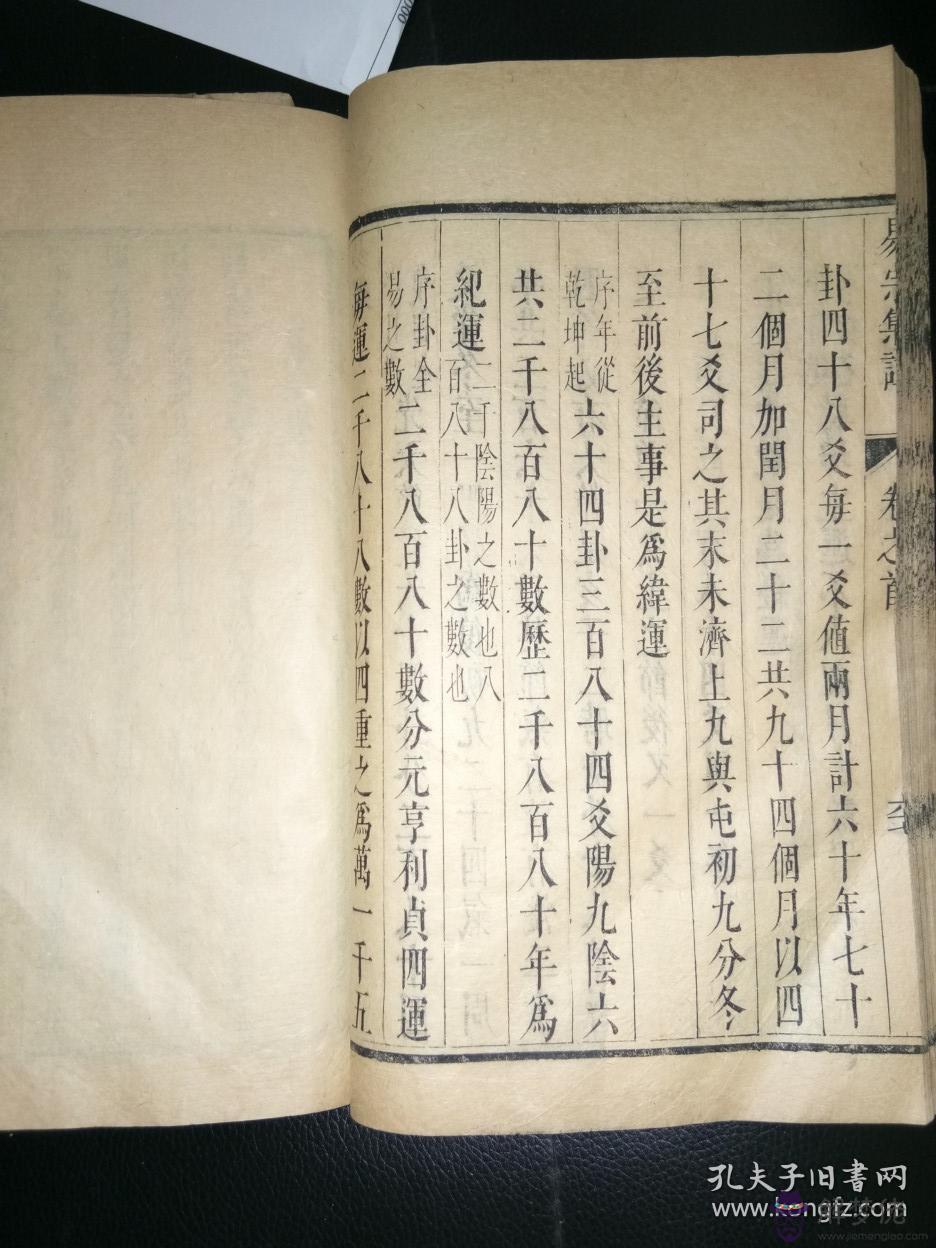 易宗集註
卷之首
卦四十八爻每一爻值兩月計六十年七十
二個月加閏月二十二共九十四個月以四
十七爻司之其末未濟上九與屯初九分冬
至前後主事是為緯運
序年從
乾坤起
六十四卦三百八十四爻陽九陰六
共二千八百八十數歷二千八百八十年為
紀運
二千陰陽之數也八
百八十八卦之數也
序卦全
易之數
二千八百八十數分元亨利貞四運
每運二千八十八數以四重之為萬一千五
000
孔夫子旧书网
www.kongfz.com
解梦佬
www.jiemenglao.com